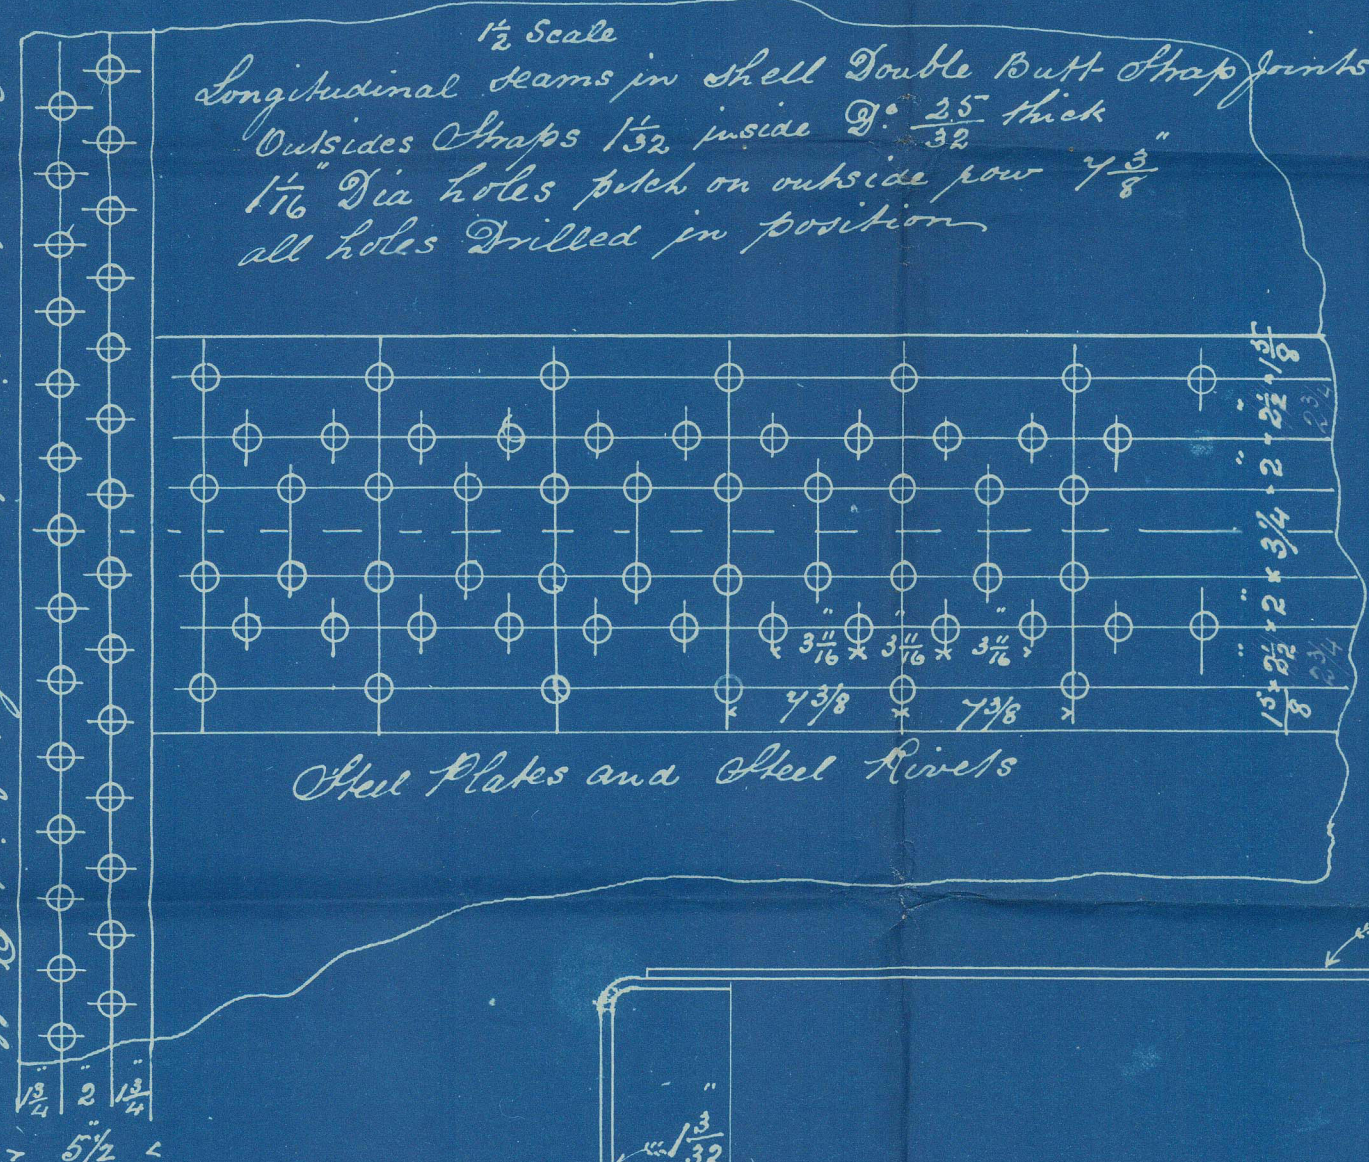 1½ Scale
Longitudinal seams in shell Double Butt Strap Joints
Outsides Straps 1 1/32 inside Dº 25/32 thick
1 1/16" Dia holes pitch on outside row 7 3/8"
all holes Drilled in position
3 11/16" × 3 11/16" × 3 11/16"
7 3/8 × 7 3/8
Steel Plates and Steel Rivets
1 3/4" 2" 1 3/4"
5½"
1 3/32"
2 3/4
2 3/4